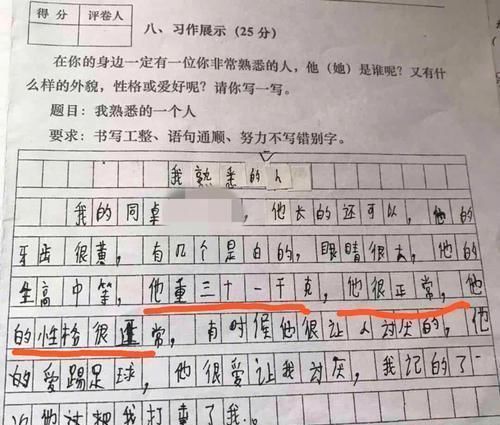 得 分 评卷人
八、习作展示（25分）
在你的身边一定有一位你非常熟悉的人，他（她）是谁呢？又有什
么样的外貌，性格或爱好呢？请你写一写。
题目：我熟悉的一个人
要求：书写工整、语句通顺、努力不写错别字。
我熟悉的人
我的同桌 ，他长的还可以，他的
牙齿很黄，有几个是白的，眼睛很大，他的
生高中等，他重三十一千克，他很正常，他
的性格很正常，有时候他很让人讨厌的，他
的爱踢足球，他很爱让我讨厌，我记的了一
次他过把我打哭了我。